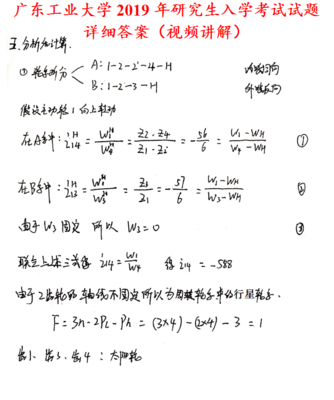 广东工业大学 2019 年研究生入学考试试题
详细答案（视频讲解）
五.分析与计算.
① 轮系拆分 A: 1-2-2'-4-H 内啮合同向
B: 1-2-3-H 外啮合反向
假设主动轮1向上转动
在A系中: i₁₄ᴴ = W₁ᴴ/W₄ᴴ = Z₂·Z₄/Z₁·Z₂' = -56/6 = W₁-W_H/W₄-W_H ①
在B系中: i₁₃ᴴ = W₁ᴴ/W₃ᴴ = Z₃/Z₁ = -57/6 = W₁-W_H/W₃-W_H ②
由于 W₃ 固定 所以 W₃=0 ③
联立上述三式得 i₁₄=W₁/W₄ 得 i₁₄ = -588
由于2齿轮的轴线不固定所以为周转轮系中的行星轮系.
F = 3n-2P_L-P_h = (3×4)-(2×4)-3 = 1
齿1. 齿3. 齿4: 太阳轮